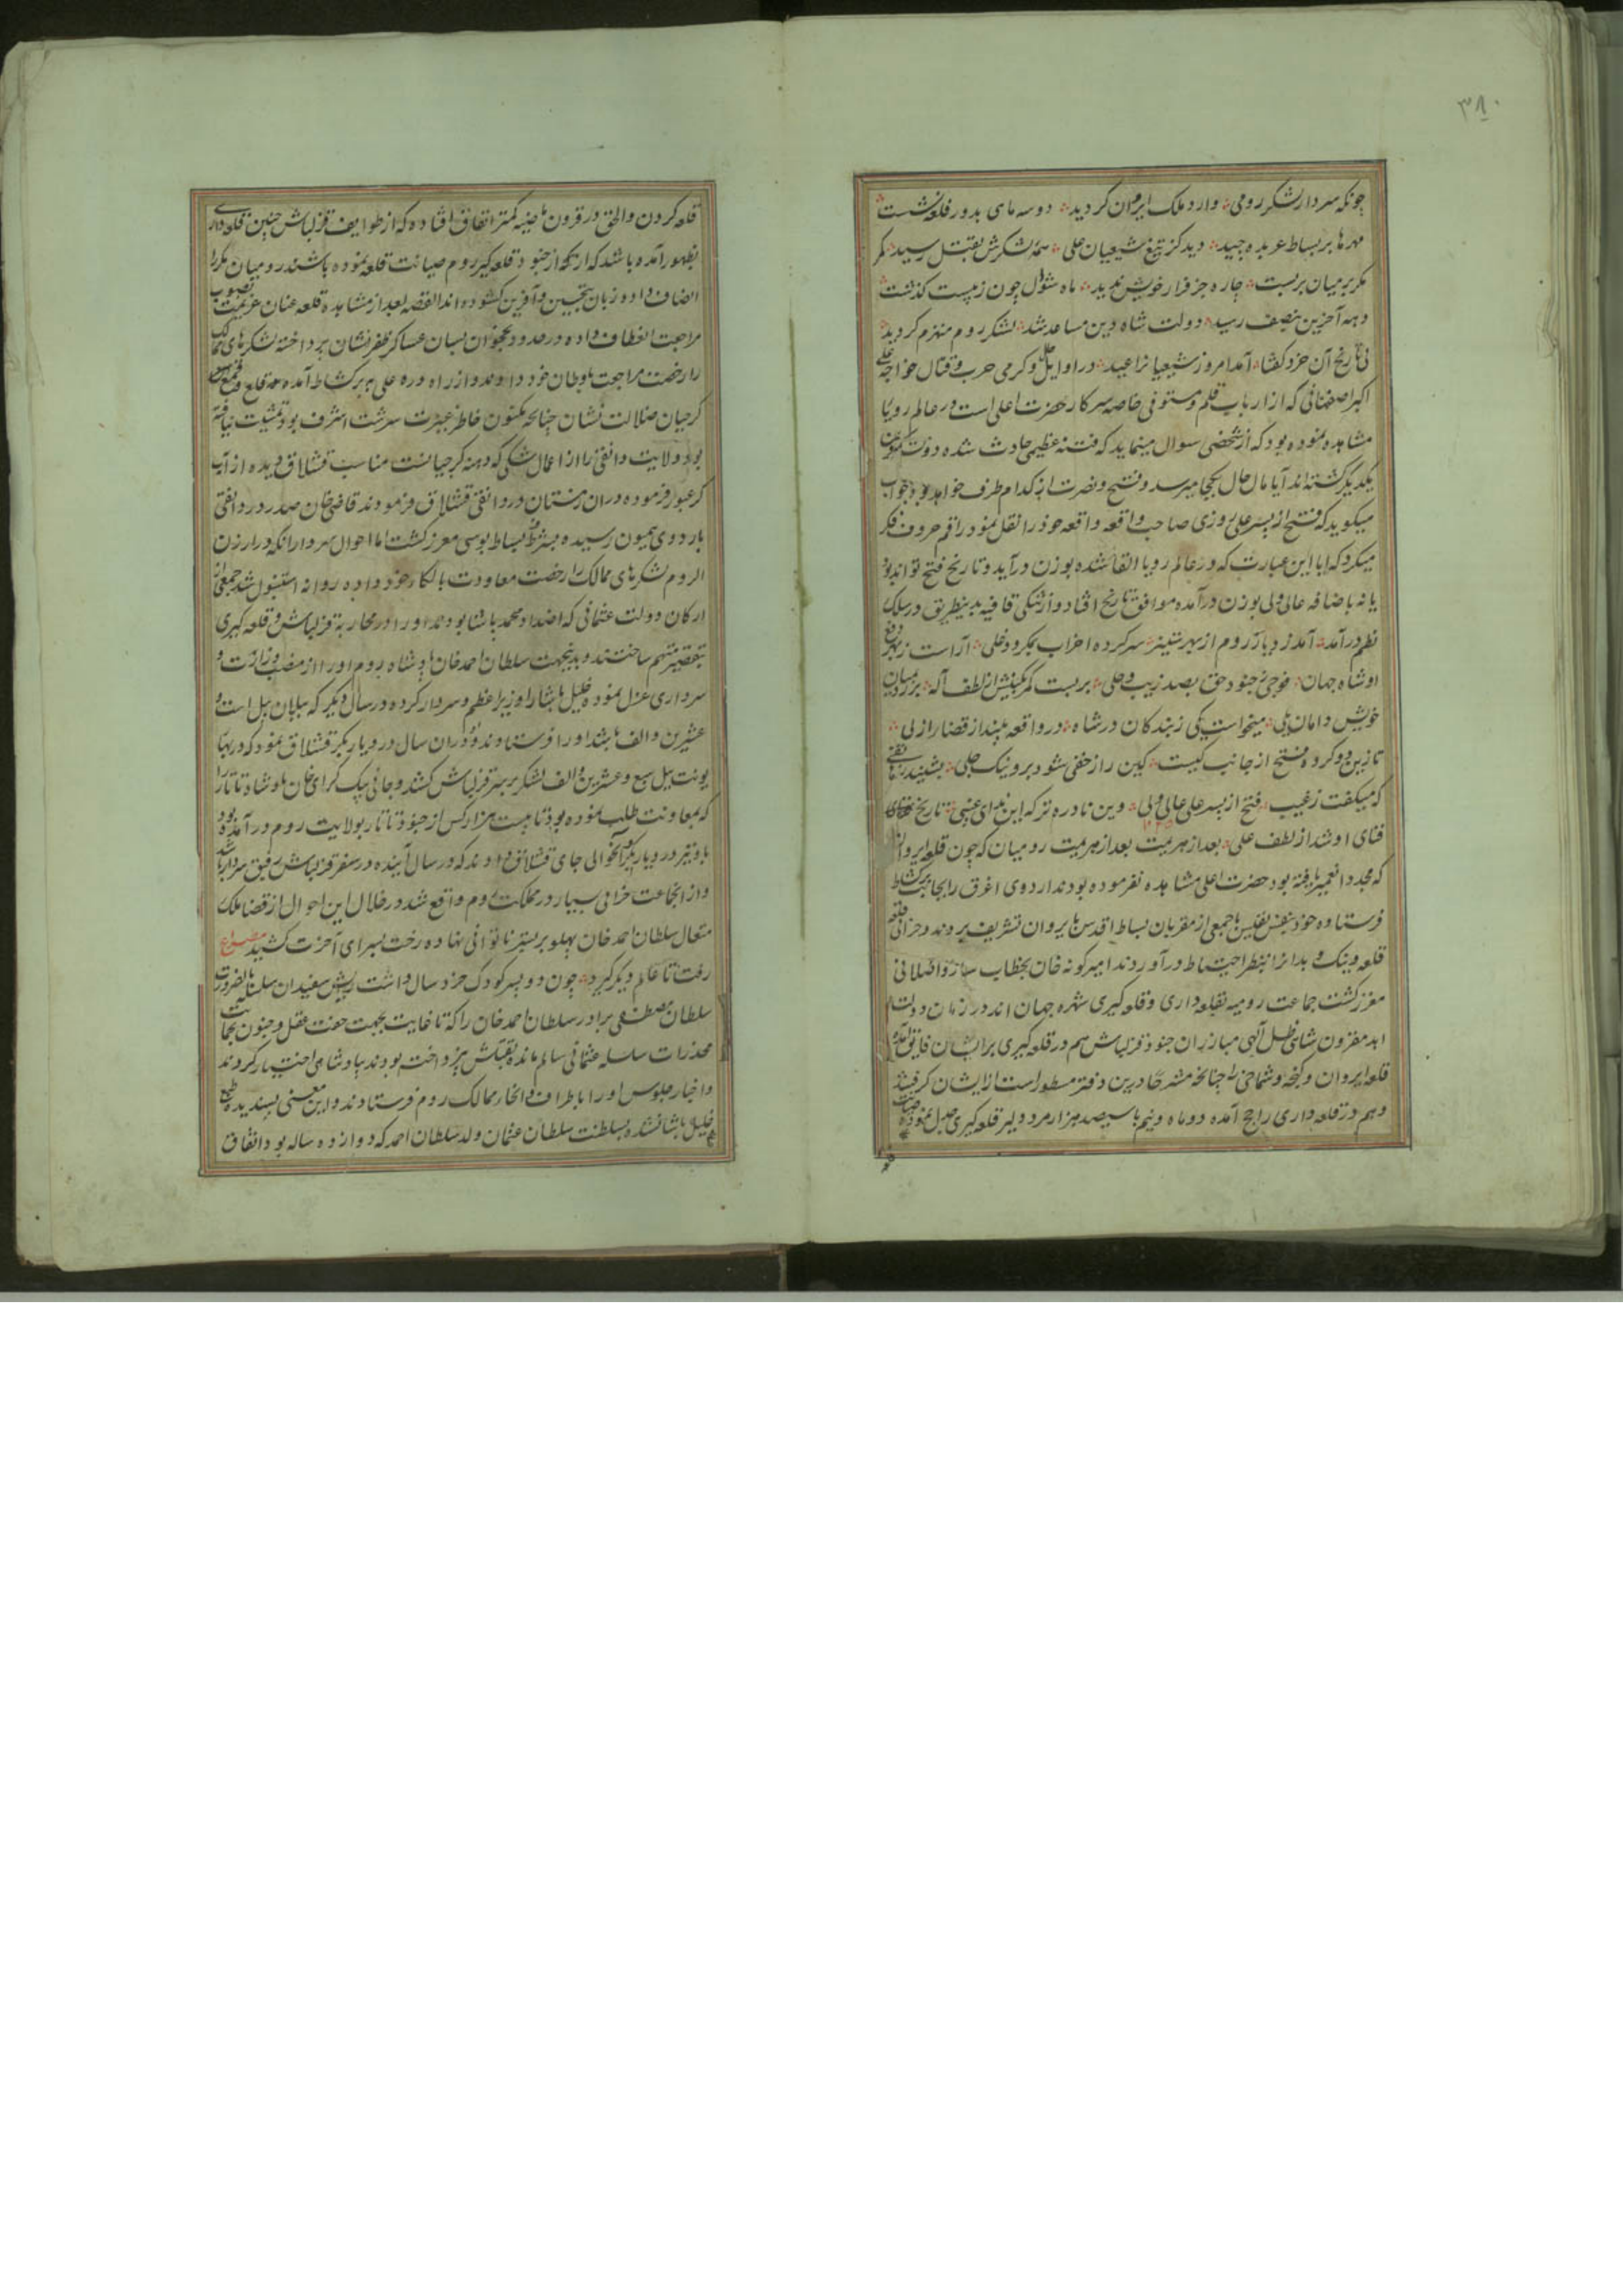 ۳۸۰
چونکه سردار لشکر رومی وارد ملک ایروان کردید دو سه ماهی بدور قلعه نشست
مهرها بر بساط عربده چید دید کز تیغ شیعیان علی همه لشکرش بقتل رسید مکر
مکر بر میان بربست چاره جز فرار خویش ندید ماه شوال چون ز بیست کذشت
دهه آخرین بنصف رسید دولت شاه دین مساعد شد لشکر روم منهزم کردید
پی تاریخ آن خرد کفتا آمد امروز شیعیانرا عید در اوایل و کرمی حرب و قتال خواجه علی
اکبر اصفهانی که از ارباب قلم و مستوفی خاصه سرکار حضرت اعلی است در عالم رویا
مشاهده نموده بود که از شخصی سوال مینماید که فتنه عظیمی حادث شده دولت
یکدیکر کشته اند آیا مال حال بکجا میرسد و فتح و نصرت از کدام طرف خواهد بود جواب
میکوید که فتح از بسر علی روزی صاحب واقعه واقعه خود را نقل نمود راقم حروف فکر
میکرد که ایا این عبارت که در عالم رویا القا شده بوزن درآید و تاریخ فتح تواند بود
یا نه باضافه عالی ولی بوزن درآمده موافق تاریخ افتاد و از تنکی قافیه بدینطریق در سلک
نظم درآمد آمد ز دیار روم از بهر ستیز سر کرده احزاب بمکر و دغلی آراست ز بهر رزم
او شاه جهان فوجی ز جنود حق بصد زیب و حلی بربست کمر بکینش از لطف آله بر زد بمیان
خویش دامان یلی میخواست یکی ز بندکان در شاه در واقعه بیند از قضا راز لی
تا زین دو کروه فتح از جانب کیست کین راز خفی شود برو نیک جلی بشنید ز هاتفی
که میکفت ز غیب فتح از بسر علی عالی ولی وین نادره تر که این ندای غیبی تاریخ
فنای او شد از لطف علی بعد از هزیمت بعد از هزیمت رومیان که چون قلعه ایروان
که مجددا تعمیر یافته بود حضرت اعلی مشاهده نفرموده بودند اردوی اغرق را بجانب برکشاط
فرستاده خود بنفس نفیس با جمعی از مقربان بساط اقدس بایروان تشریف بردند و خرابی قلعه
قلعه و نیک و بد انرا بنظر احتیاط درآوردند امیرکونه خان بخطاب سارو اصلانی
معزز کشت جماعت رومیه بقلعه داری و قلعه کیری شهره جهان اند در زمان دولت
ابد مقرون شاهی ظل آلهی مبارزان جنود قزلباش هم در قلعه کیری بر ایشان فایق آمده
قلعه ایروان و کنجه و شماخی را چنانچه مشرحا درین دفتر مسطور است از ایشان کرفتند
و هم در قلعه داری راجح آمده دو ماه و نیم با سیصد هزار مرد دلیر قلعه کیری جدل نموده صیانت
قلعه کردن و الحق در قرون ماضیه کمتر اتفاق افتاده که از طوایف قزلباش چنین قلعه داری
بظهور آمده باشد که از یکه از جنود قلعه کیر روم صیانت قلعه نموده باشند رومیان مکررا
انصاف داده زبان بتحسین و آفرین کشوده اند القصه بعد از مشاهده قلعه عنان عزیمت بصوب
مراجعت انعطاف داده در حدود نخجوان بسان عساکر ظفر نشان پرداخته لشکرهای ممالک
را رخصت مراجعت باوطان خود دادند و از راه دره علی به برکشاط آمده قلع و قمع
کرجیان ضلالت نشان چنانچه مکنون خاطر عبرت سرشت اشرف بود تمشیت نیافته
بود ولایت دانقی را از اعمال شکی که دهنه کرجیانست مناسب قشلاق دیده از آب
کر عبور فرموده دران زمستان در دانقی قشلاق فرمودند قاضی خان صدر در دانقی
باردوی همیون رسیده بشرف بساط بوسی معزز کشت اما احوال سردار انکه در ارزن
الروم لشکرهای ممالک را رخصت معاودت بالکاء خود داده روانه استنبول شد جمعی از
ارکان دولت عثمانی که اضداد محمد باشا بودند او را در محاربه قزلباش و قلعه کیری
بتقصیر متهم ساختند و بدینجهت سلطان احمد خان پادشاه روم او را از منصب وزارت و
سرداری عزل نموده خلیل باشا را وزیر اعظم و سردار کرده در سال دیکر که ییلان ییل است و
عشرین و الف باشد او را فرستادند و او دران سال در دیار بکر قشلاق نمود که در بهار
یونت ییل سبع و عشرین و الف لشکر بر سر قزلباش کشد و جانی بیک کرای خان پادشاه تاتار را
که بمعاونت طلب نموده بود تا بیست هزار کس از جنود تاتار بولایت روم درآمده بود
باو نیز در دیار بکر آنحوالی جای قشلاق دادند که در سال آینده در سفر قزلباش رفیق سردار باشد
و از انجاعت خرابی بسیار در مملکت روم واقع شد در خلال این احوال از قضا ملک
متعال سلطان احمد خان پهلو بر بستر ناتوانی نهاده رخت بسرای آخرت کشید مصراع
رفت تا عالم دیکر کیرد چون دو پسر کودک خرد سال داشت ریش سفیدان سلسله بالضرورت
سلطان مصطفی برادر سلطان احمد خان را که تا غایت بجهت خفت عقل و جنون بحمایت
مخدرات سلسله عثمانی سالم مانده بقتلش نپرداخته بودند بپادشاهی اختیار کردند
و اخبار جلوس او را باطراف و انحاء ممالک روم فرستادند و این معنی پسندیده طبع
خلیل باشا نشده بسلطنت سلطان عثمان ولد سلطان احمد که دوازده ساله بود اتفاق